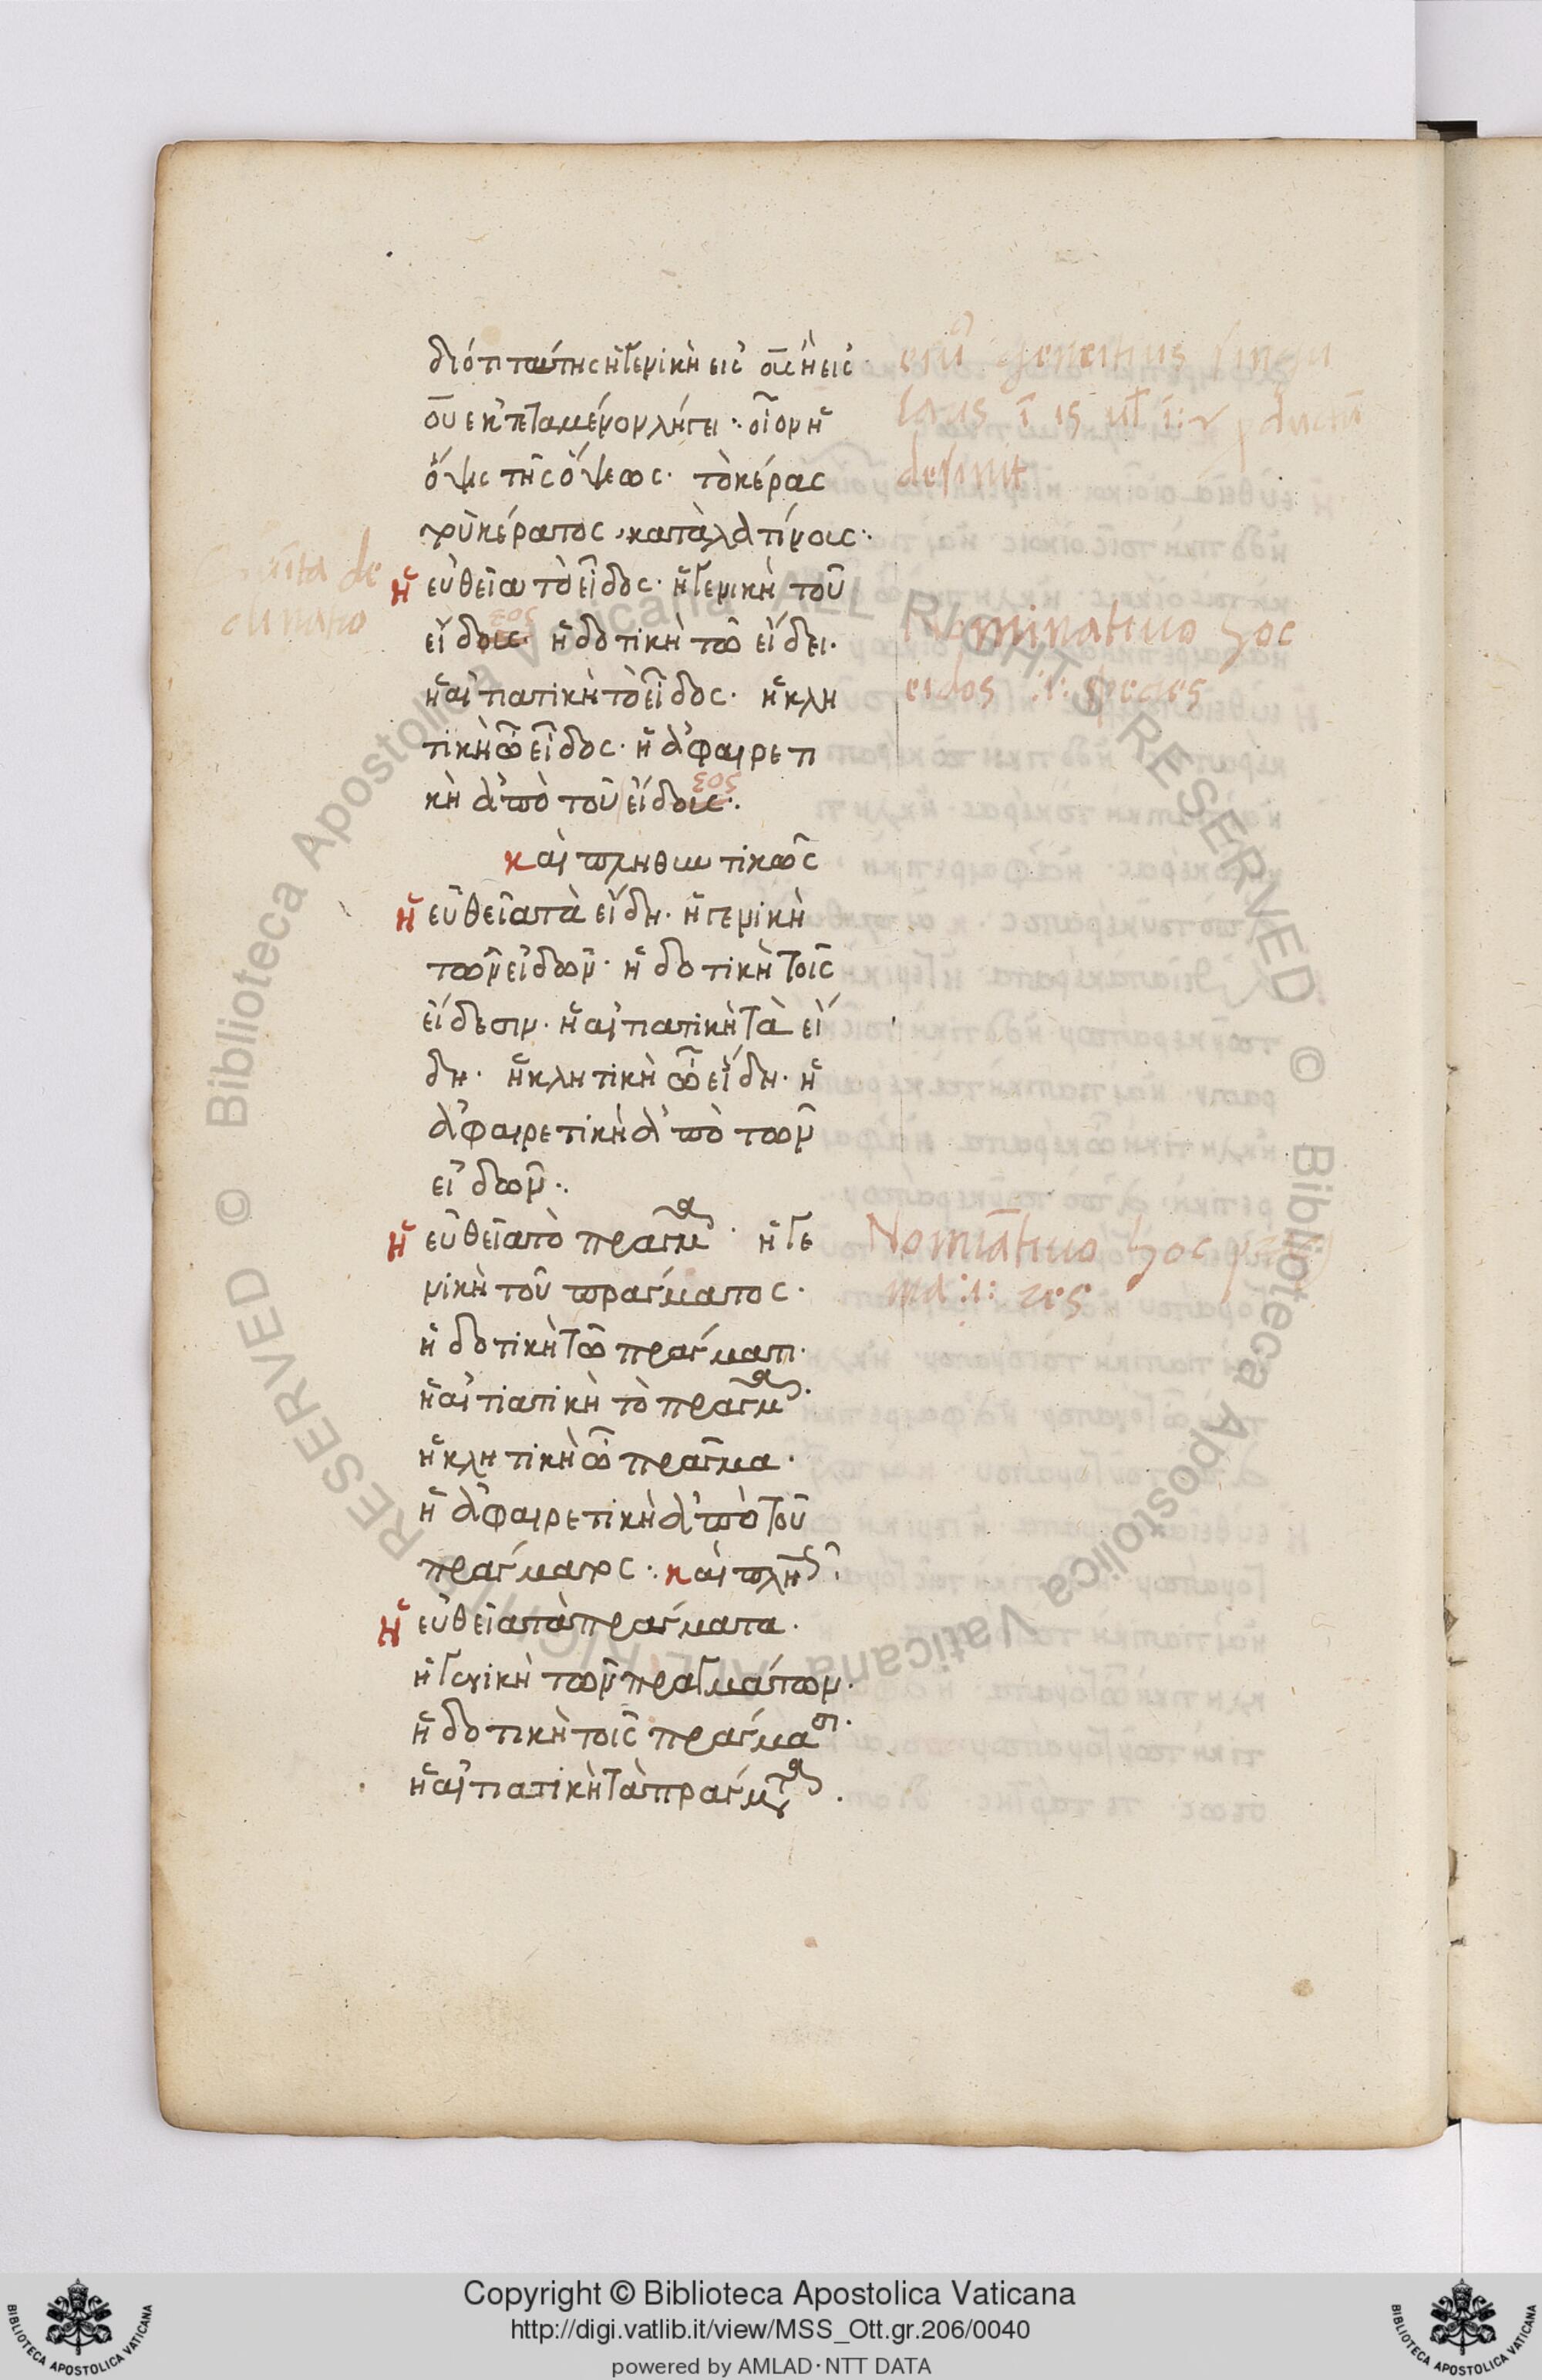 διότι ταύτης ἡ γενικὴ εις ους ἢ εις
ου εκτεταμένον λήγει· οἷον ἡ
ὄψις τῆς ὄψεως· τὸ κέρας
τοῦ κέρατος, κατὰ λατίνοις·
ἡ εὐθεῖα τὸ εἶδος· ἡ γενικὴ τοῦ
εος
εἴδους ἡ δοτικὴ τῶ εἴδει·
ἡ αἰτιατικὴ τὸ εἶδος· ἡ κλη
τικὴ ὦ εἶδος· ἡ ἀφαιρετι
εος
κὴ ἀπὸ τοῦ εἴδους·.
και πληθυντικῶς
ἡ εὐθεῖα τὰ εἴδη· ἡ γενικὴ
τῶν εἰδῶν· ἡ δοτικὴ τοῖς
εἴδεσιν· ἡ αἰτιατικὴ τὰ εἴ
δη· ἡ κλητικὴ ὦ εἴδη· ἡ
ἀφαιρετικὴ ἀπὸ τῶν
εἰδῶν·.
ἡ εὐθεῖα τὸ πρᾶγμα· ἡ γε
νικὴ τοῦ πράγματος·
ἡ δοτικὴ τῶ πράγματι·
ἡ αἰτιατικὴ τὸ πρᾶγμα·
ἡ κλητικὴ ὦ πρᾶγμα·
ἡ ἀφαιρετικὴ ἀπὸ τοῦ
πράγματος·. καὶ πλη
ἡ εὐθεῖα τὰ πράγματα·
ἡ γενικὴ τῶν πραγμάτων·
ἡ δοτικὴ τοῖς πράγμασι·
ἡ αἰτιατικὴ τὰ πράγματα·
genetiuus singu
laris ī is ul
desinit
de
clinatio
Nominatiuo hoc
eidos :i: species
Nomīatiuo hoc
ma :i: res
Copyright © Biblioteca Apostolica Vaticana
http://digi.vatlib.it/view/MSS_Ott.gr.206/0040
powered by AMLAD·NTT DATA
BIBLIOTECA APOSTOLICA VATICANA
BIBLIOTECA APOSTOLICA VATICANA
© Biblioteca Apostolica Vaticana ALL RIGHTS RESERVED
© Biblioteca Apostolica Vaticana ALL RIGHTS RESERVED